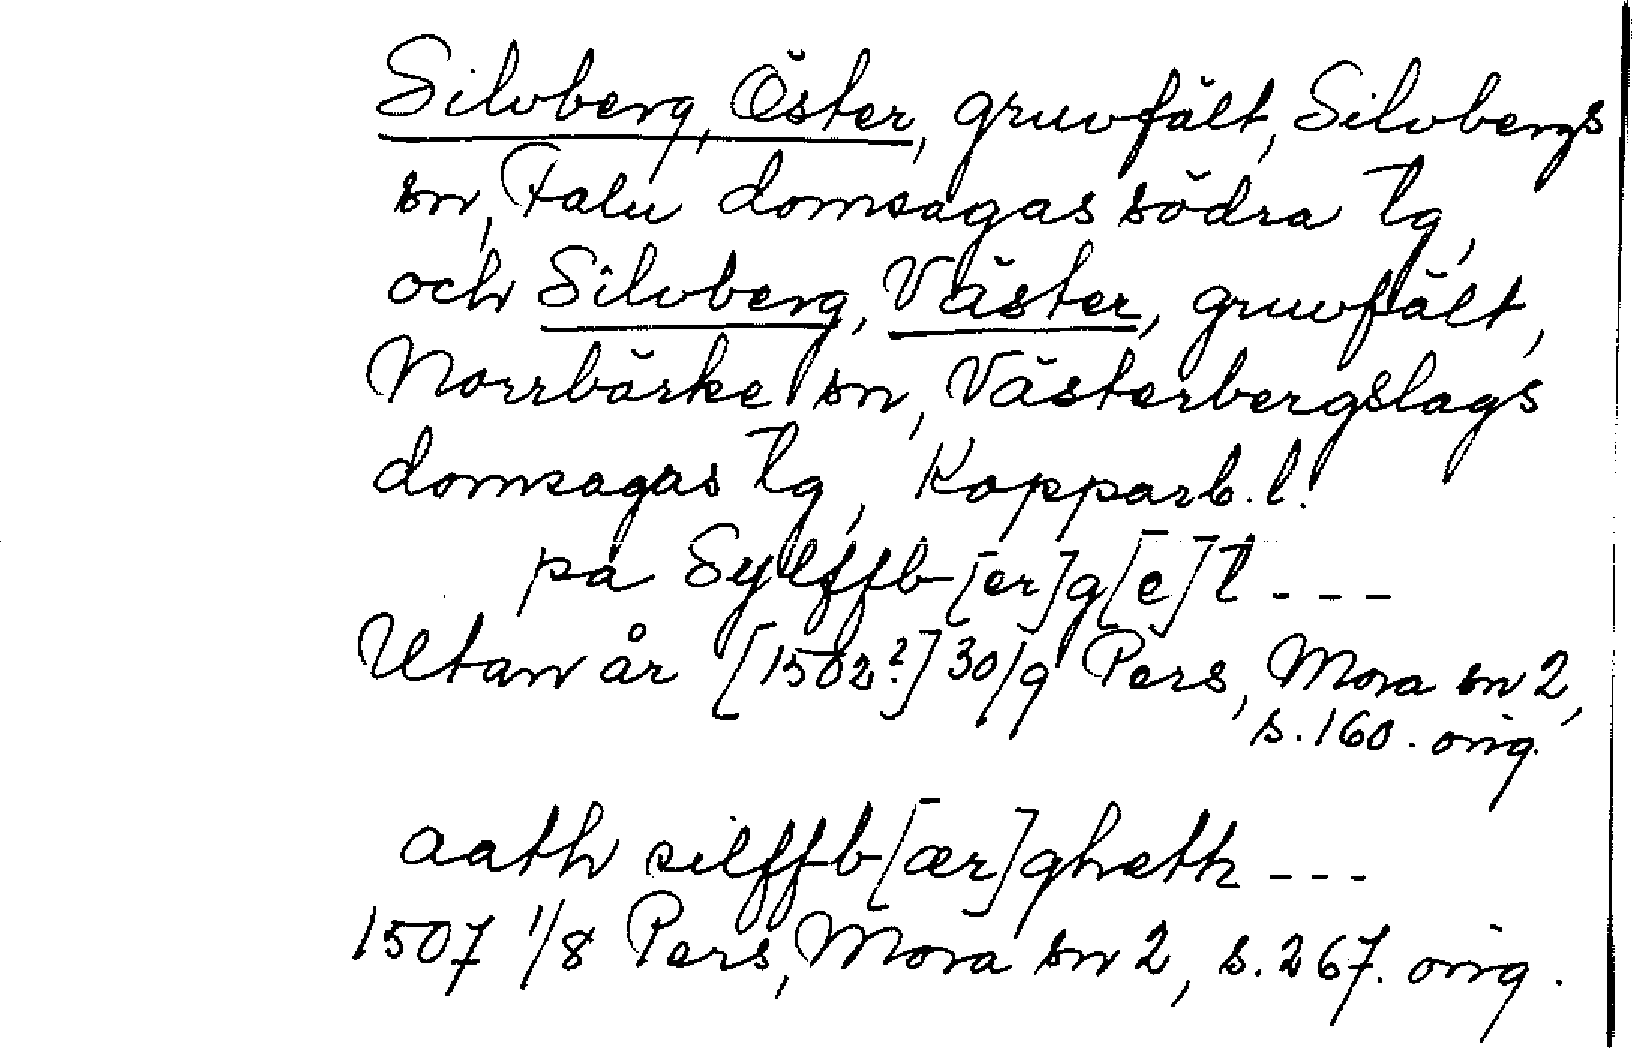 Silvberg, Öster, gruvfält, Silvbergs
sn, Falu domsagas södra tg,
och Silvberg, Väster, gruvfält,
Norrbärke sn, Västerbergslags
domsagas tg, Kopparb. l.
på Sylffb[er]g[e]t ---
Utan år [1502?] 30/9 Pers, Mora sn 2,
s. 160. orig.
aath silffb[ær]gheth ---
1507 1/8 Pers, Mora sn 2, s. 267. orig.